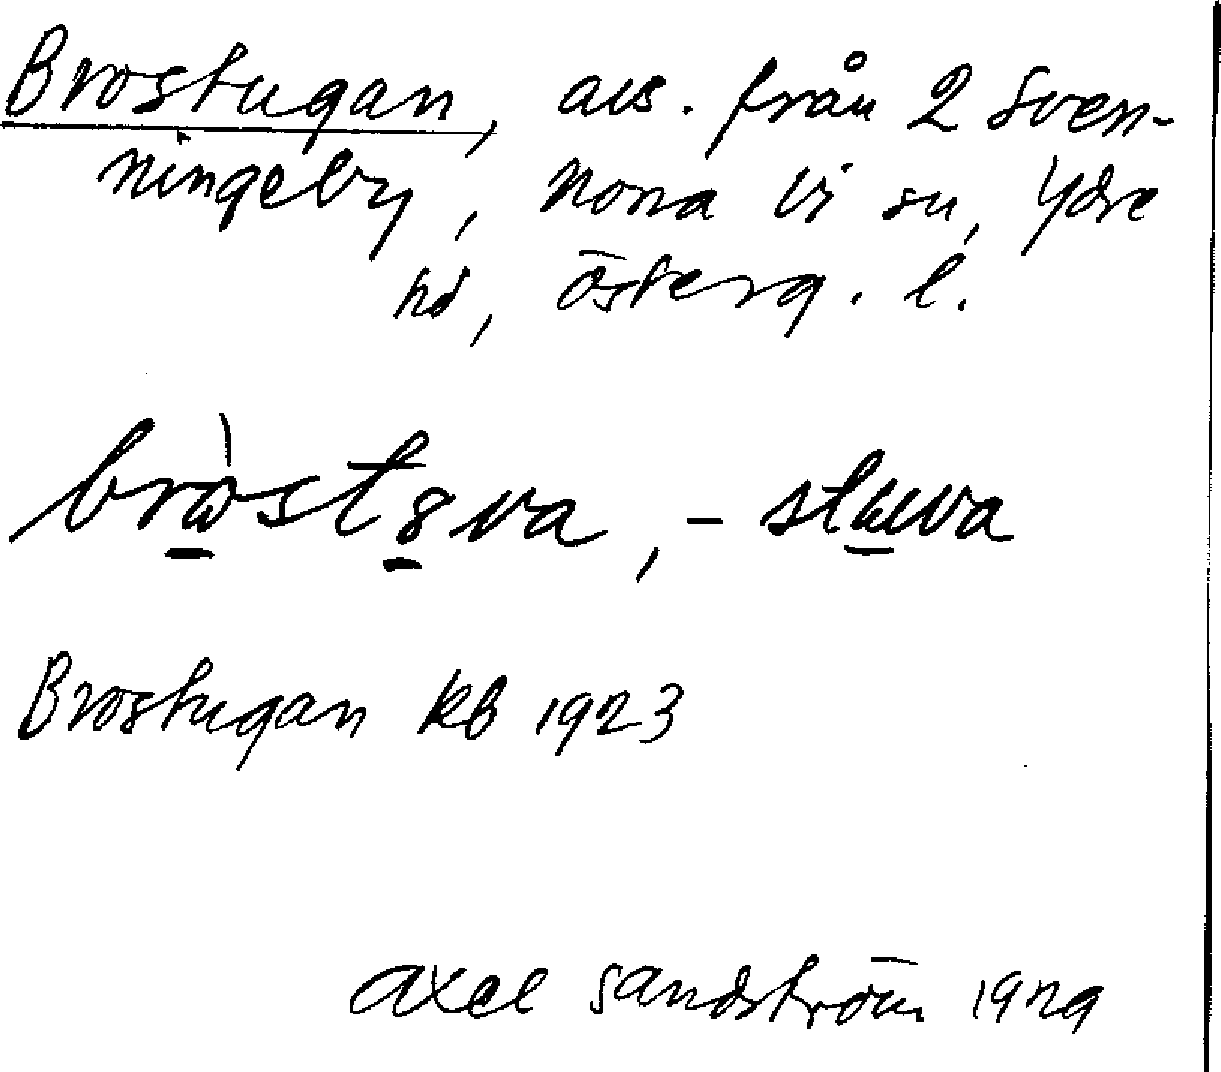 Brostugan, avs. från 2 Sven-
ningeby, Norra Vi sn, Ydre
hd, Österg. l.
Brostugan KB 1923
Axel Sandström 1929